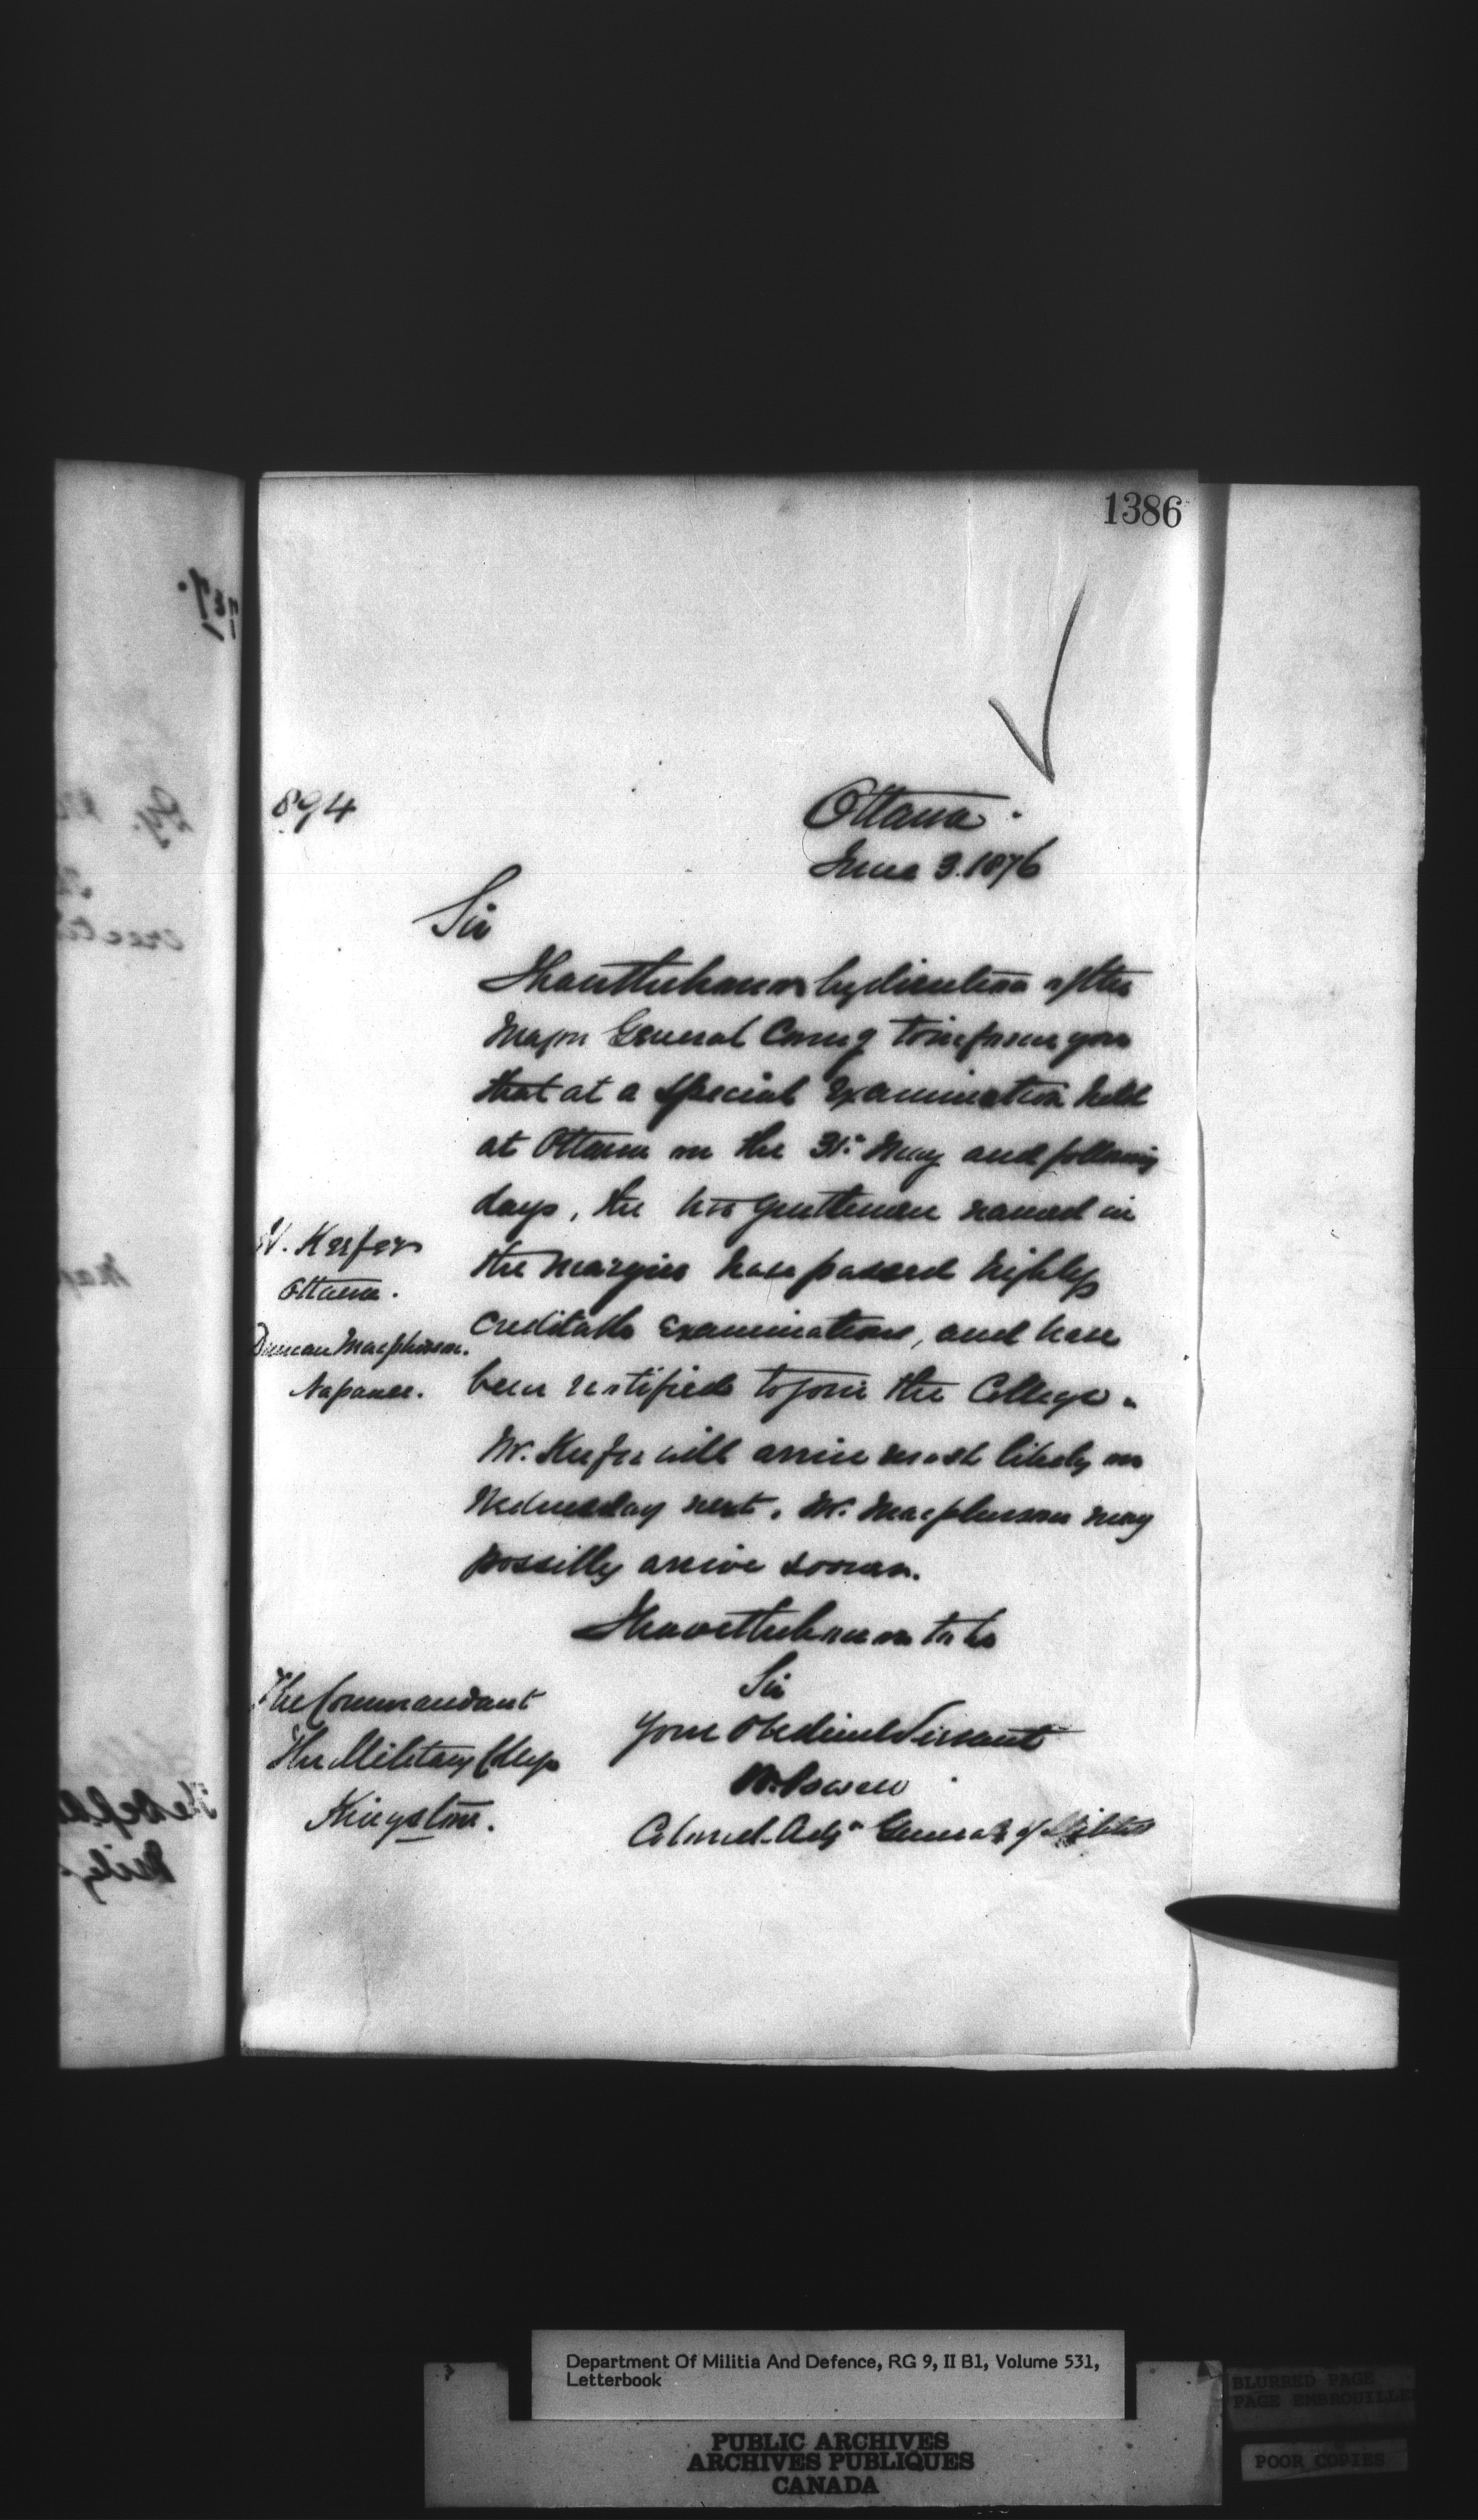 1386
894
Ottawa.
June 3. 1876
Sir
I have the honor by direction of the
Major General Comg to inform you
that at a special Examination held
at Ottawa on the 31st May and following
days, the two gentlemen named in
the margin have passed highly
creditable Examinations, and have
been certified to join the College.
H. Keefer
Ottawa.
Duncan Macpherson.
Napanee.
Mr. Keefer will arrive most likely on
Wednesday next. Mr. Macpherson may
possibly arrive sooner.
I have the honor to be
Sir
Your Obedient Servant
W. Powell
Colonel Adjt General of Militia
The Commandant
The Military College
Kingston.
Department Of Militia And Defence, RG 9, II B1, Volume 531,
Letterbook
PUBLIC ARCHIVES
ARCHIVES PUBLIQUES
CANADA
BLURRED PAGE
PAGE EMBROUILLEE
POOR COPIES